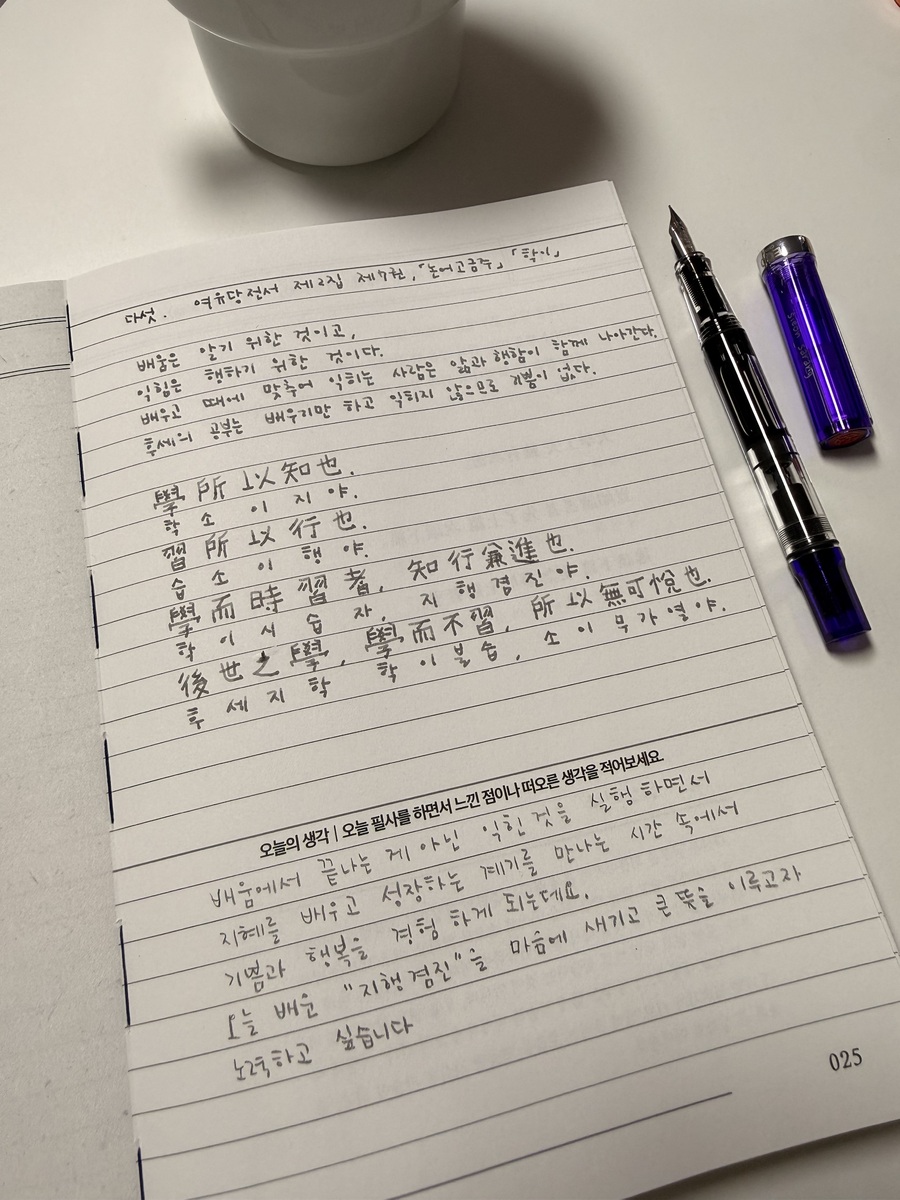 다섯. 여유당전서 제2집 제7권, 「논어고금주」 「학이」
배움은 알기 위한 것이고,
익힘은 행하기 위한 것이다.
배우고 때에 맞추어 익히는 사람은 앎과 행함이 함께 나아간다.
후세의 공부는 배우기만 하고 익히지 않으므로 기쁨이 없다.
學所以知也.
학 소 이 지 야.
習所以行也.
습 소 이 행 야.
學而時習者, 知行兼進也.
학 이 시 습 자, 지 행 겸 진 야.
後世之學, 學而不習, 所以無可悅也.
후 세 지 학 학 이 불 습, 소 이 무 가 열 야.
오늘의 생각 | 오늘 필사를 하면서 느낀 점이나 떠오른 생각을 적어보세요.
배움에서 끝나는 게 아닌 익힌 것을 실행 하면서
지혜를 배우고 성장하는 계기를 만나는 시간 속에서
기쁨과 행복을 경험 하게 되는데요.
오늘 배운 "지행겸진"을 마음에 새기고 큰 뜻을 이루고자
노력하고 싶습니다
025